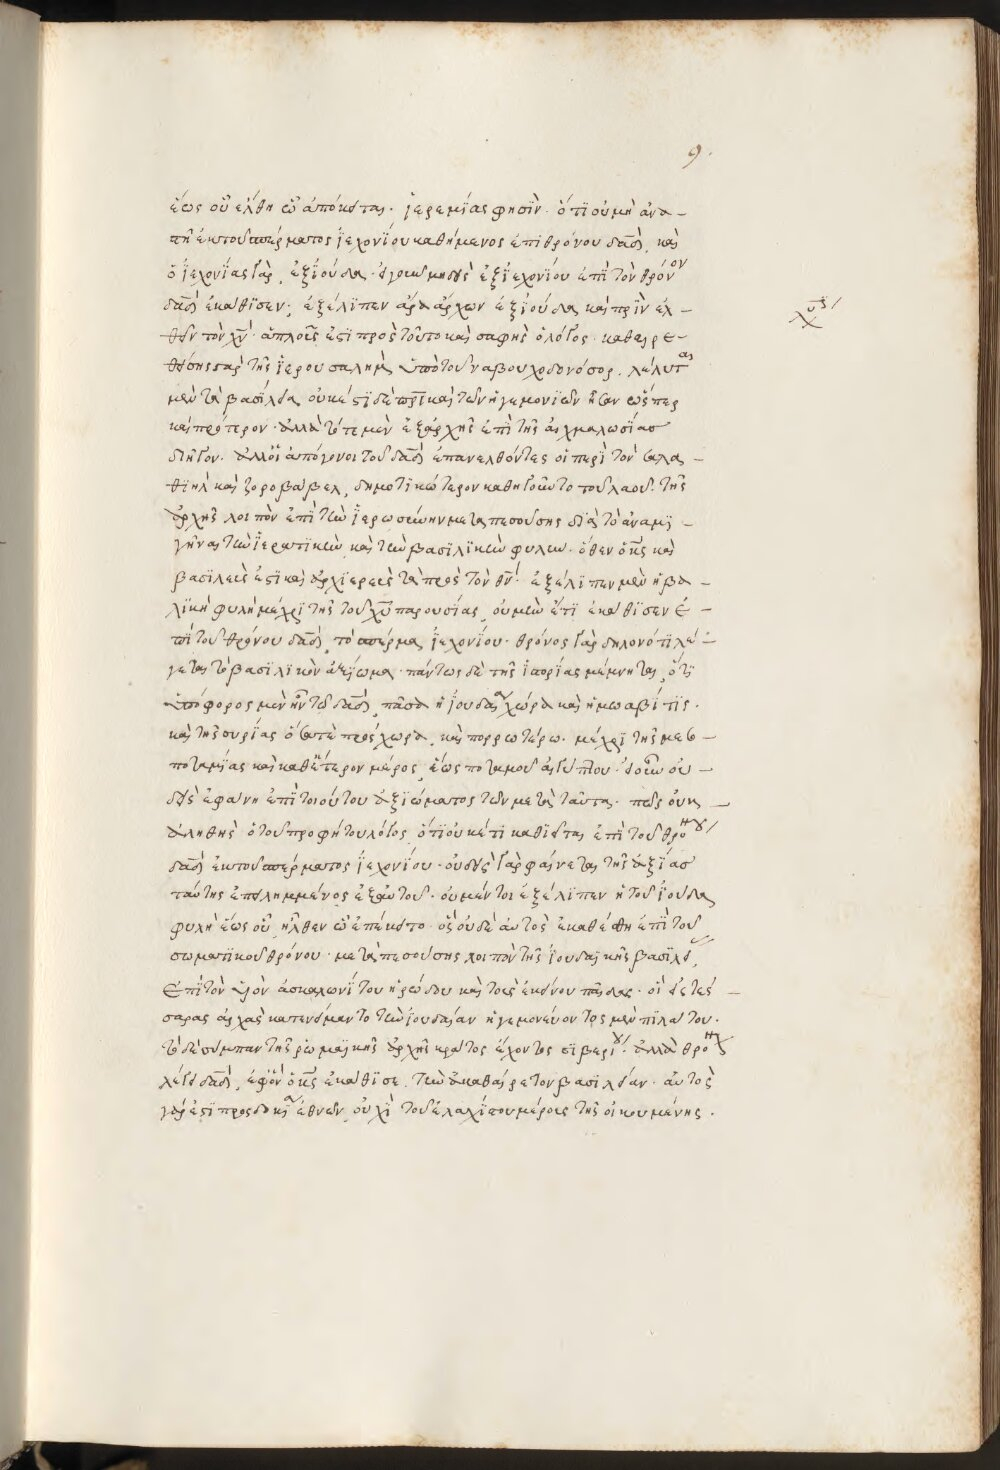 9.
ἕως οὗ ἔλθη ᾧ ἀπόκειται. ϊερεμΐας φησὶν. ὅτι οὐ μὴ ἀνα-
στῆ ἐκ τοῦ σπέρματος ϊεχονΐου καθήμενος ἐπὶ θρόνου δαδ, καὶ
ὁ ϊεχονΐας γὰρ, ἐξ ϊούδα. εἰ τοίνυν μηδεὶς ἐξ ϊεχονίου ἐπὶ τὸν θρόνον
δαδ ἐκάθισεν, ἐξέλιπεν ἄρα ἄρχων ἐξ ϊούδα καὶ πρὶν ἐλ-
θεῖν τὸν χν. ἁπλοῦς ἐστι πρὸς τοῦτο καὶ σαφὴς ὁ λόγος. καθαιρε-
θείσης γὰρ τῆς ϊερουσαλὴμ ὑπὸ τοῦ ναβουχοδονόσορ, λέλυται
μὲν τὰ βασίλεια, οὐκέτι δὲ πρὶ καὶ τῶν ἡγεμονιῶν ἦσαν ὥσπερ
καὶ πρότερον. ἀλλὰ τότε μὲν ἐξάρχης ἐπὶ τῆς αἰχμαλωσίας
διῆγον. ἀλλ' οἱ ἀπόγονοι τοῦ δαδ ἐπανελθόντες οἱ περὶ τὸν σαλα-
θιὴλ καὶ ζοροβάβελ, δημοτικώτερον καθηγοῦντο τοῦ λαοῦ. τῆς
ἀρχῆς λοιπὸν ἐπὶ τὴν ϊερωσύνην μεταπεσούσης διὰ τὸ ἀναμι-
γῆναι τὴν ϊερατικὴν καὶ τὴν βασιλικὴν φυλὴν. ὅθεν ὁ κς καὶ
βασιλεὺς ἐστι καὶ ἀρχιερεὺς τὰ πρὸς τὸν θν. ἐξέλιπεν μὲν ἡ βα-
λικὴ φυλὴ μέχρι τῆς τοῦ χυ παρουσίας, οὐ μὴν ἔτι ἐκάθισεν ἐ-
πὶ τοῦ θρόνου δαδ, τὸ σπέρμα ϊεχονΐου. θρόνος γὰρ δηλονότι λέ-
γεται τὸ βασιλικὸν ἀξίωμα. πάντως δὲ τῆς ἱστορίας μέμνηται, ὅτι
ὑπόφορος μὲν ἦν τῷ δαδ, πᾶσα ἡ ϊουδαία χώρα καὶ ἡ μωαβίτις.
καὶ τῆς συρίας ὅσα τὲ πρόσχωρα, καὶ πορρωτέρω. μέχρι τῆς μεσο-
ποταμΐας καὶ καθ' ἕτερον μέρος, ἕως ποταμοῦ αἰγύπτου. εἰ οὖν οὐ-
δεὶς ἐφάνη ἐπὶ τοιούτου ἀξιώματος τῶν μετὰ ταῦτα. πῶς οὐκ
ἀληθὴς ὁ τοῦ προφήτου λόγος, ὅτι οὐκέτι καθίσεται ἐπὶ τοῦ θρόνου
δαδ ἐκ τοῦ σπέρματος ϊεχονΐου. οὐδεὶς γὰρ φαίνεται τῆς ἀξίας
ταύτης ἐπειλημμένος ἐξ αὐτοῦ. οὐ μέντοι ἐξέλιπεν ἡ τοῦ ϊούδα
φυλὴ ἕως οὗ ἦλθεν ᾧ ἐπέκειτο. ὃς οὐδὲ αὐτὸς ἐκαθέσθη ἐπὶ τοῦ
σωματικοῦ θρόνου. μεταπεσούσης λοιπὸν τῆς ϊουδαϊκῆς βασιλεί,
ἐπὶ τὸν υἱὸν ἀσκαλωνίτου ἡρώδου καὶ τοὺς ἐκείνου παῖδας. οἳ εἰς τές-
σαρας ἀρχὰς κατενείμαντο τὴν ϊουδαίαν ἡγεμονεύοντος μὲν πϊλάτου.
τὸ δὲ σύμπαν τῆς ῥωμαϊκῆς ἀρχῆς κράτος ἔχοντος τϊβερίου. ἀλλὰ θρόνον
λέγει δαδ, ἐφ' ὃν ὁ κς ἐκάθισε, τὴν ἀκαθαίρετον βασιλείαν. αὐτὸς
γάρ ἐστι προσδοκία ἐθνῶν, οὐχὶ τοῦ ἐλαχίστου μέρους τῆς οἰκουμένης.